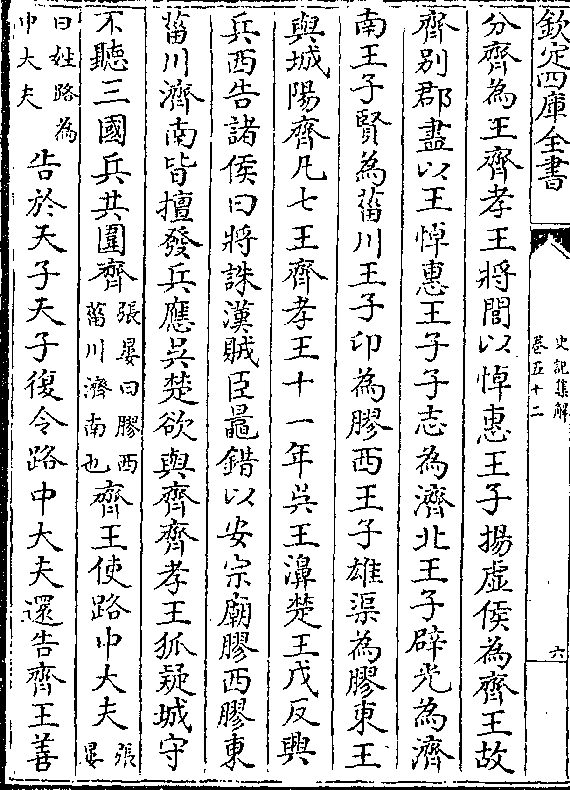 欽定四庫全書
史記集解
卷五十二
六
分齊為王齊孝王將閭以悼惠王子揚虚侯為齊王故
齊别郡盡以王悼惠王子子志為濟北王子辟光為濟
南王子賢為菑川王子卬為膠西王子雄渠為膠東王
與城陽齊凡七王齊孝王十一年吳王濞楚王戊反興
兵西告諸侯曰將誅漢賊臣鼂錯以安宗廟膠西膠東
菑川濟南皆擅發兵應吳楚欲與齊齊孝王狐疑城守
不聽三國兵共圍齊張晏曰膠西菑川濟南也齊王使路中大夫張晏
曰姓路為中大夫告於天子天子復令路中大夫還告齊王善